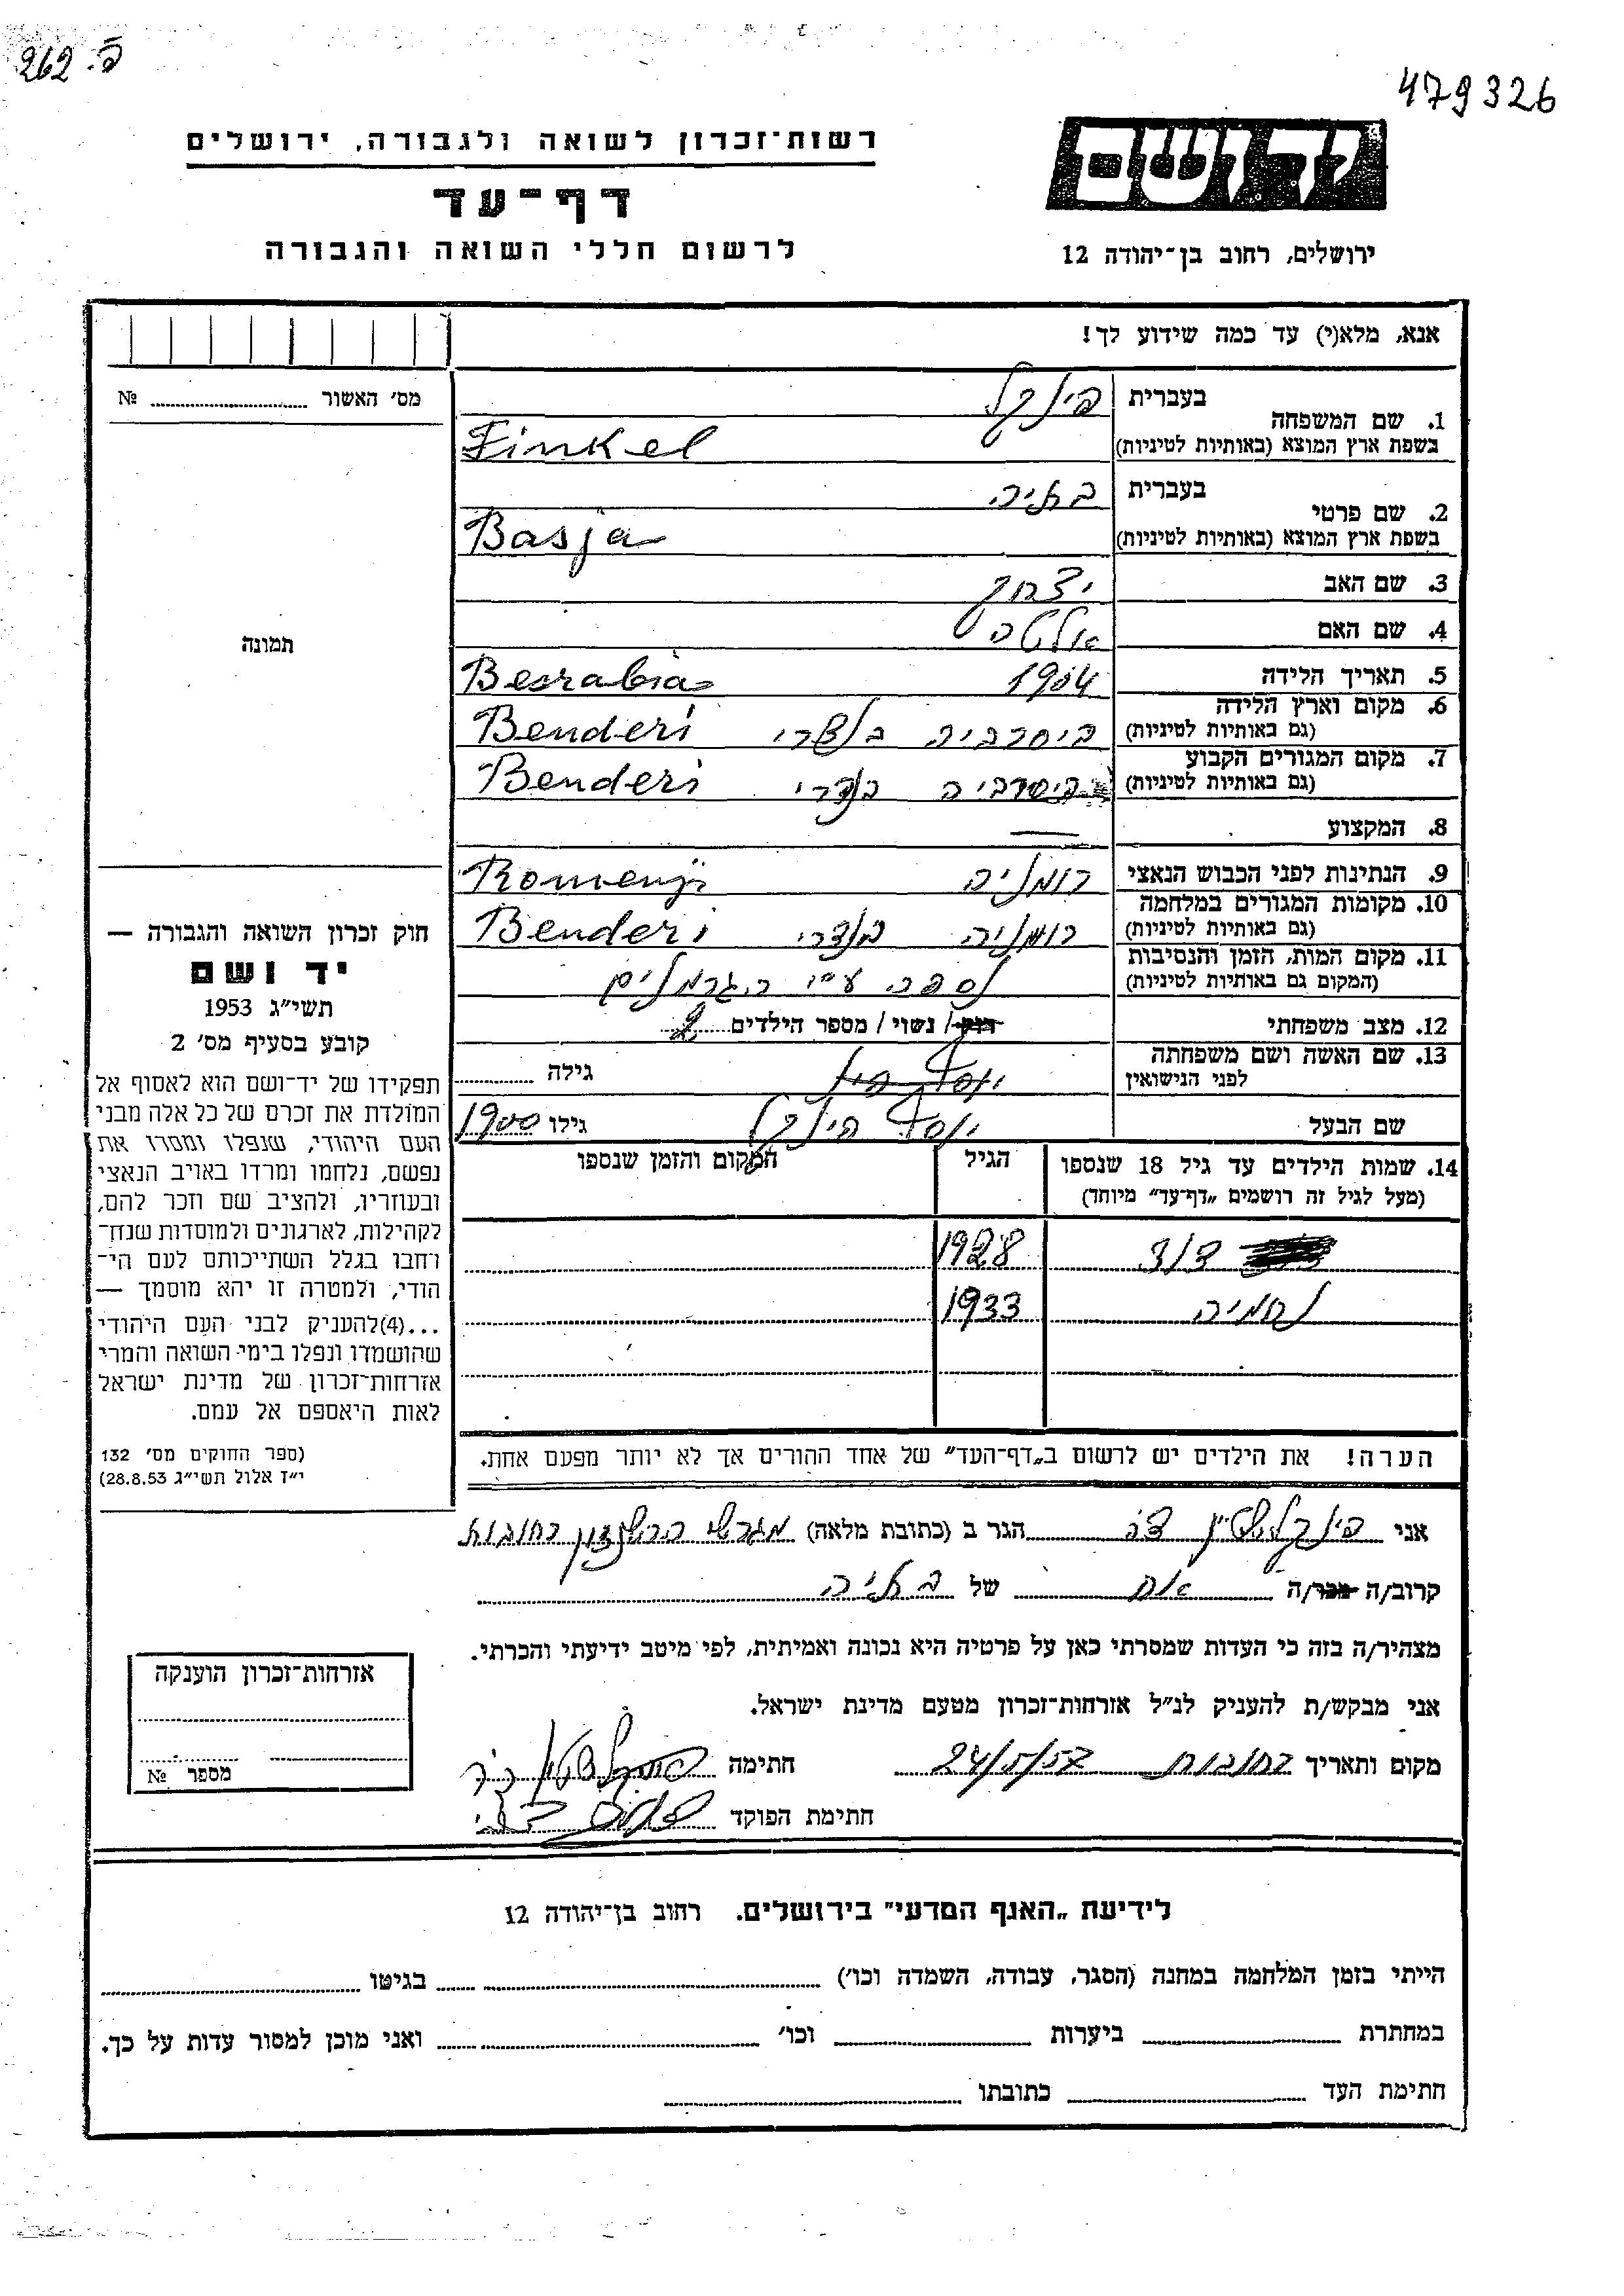 פ. 262
479326
רשות־זכרון לשואה ולגבורה, ירושלים
דף־עד
לרשום חללי השואה והגבורה
יד ושם
ירושלים, רחוב בן־יהודה 12
אנא, מלא(י) עד כמה שידוע לך!
מס׳ האשור № 
1. שם המשפחה
בעברית פינקל
בשפת ארץ המוצא (באותיות לטיניות) Finkel
2. שם פרטי
בעברית בתיה
בשפת ארץ המוצא (באותיות לטיניות) Basja
3. שם האב יצחק
4. שם האם
5. תאריך הלידה 1904 Besrabia
6. מקום וארץ הלידה
(גם באותיות לטיניות) ביסרביה בנדרי Benderi
7. מקום המגורים הקבוע
(גם באותיות לטיניות) ביסרביה בנדרי Benderi
8. המקצוע —
9. הנתינות לפני הכבוש הנאצי רומניה
10. מקומות המגורים במלחמה
(גם באותיות לטיניות) רומניה בנדרי Benderi
11. מקום המות, הזמן והנסיבות
(המקום גם באותיות לטיניות) נספה ע״י הגרמנים
12. מצב משפחתי רווק / נשוי / מספר הילדים 2
13. שם האשה ושם משפחתה
לפני הנישואין גילה
שם הבעל יוסף פינקל גילו 1900
14. שמות הילדים עד גיל 18 שנספו הגיל המקום והזמן שנספו
(מעל לגיל זה רושמים „דף־עד״ מיוחד)
דוד 1928
נחמיה 1933
הערה! את הילדים יש לרשום ב„דף־העד״ של אחד ההורים אך לא יותר מפעם אחת.
תמונה
חוק זכרון השואה והגבורה —
יד ושם
תשי״ג 1953
קובע בסעיף מס׳ 2
תפקידו של יד־ושם הוא לאסוף אל
המולדת את זכרם של כל אלה מבני
העם היהודי, שנפלו ומסרו את
נפשם, נלחמו ומרדו באויב הנאצי
ובעוזריו, ולהציב שם וזכר להם,
לקהילות, לארגונים ולמוסדות שנח־
רחבו בגלל השתייכותם לעם הי־
הודי, ולמטרה זו יהא מוסמך —
...(4)להעניק לבני העם היהודי
שהושמדו ונפלו בימי השואה והמרי
אזרחות־זכרון של מדינת ישראל
לאות היאספם אל עמם.
(ספר החוקים מס׳ 132
י״ז אלול תשי״ג 28.8.53)
אני פינקלשטיין הגר ב (כתובת מלאה) רחובות
קרוב/ה מכר/ה אח של בתיה
מצהיר/ה בזה כי העדות שמסרתי כאן על פרטיה היא נכונה ואמיתית, לפי מיטב ידיעתי והכרתי.
אני מבקש/ת להעניק לנ״ל אזרחות־זכרון מטעם מדינת ישראל.
מקום ותאריך רחובות 24/5/57 חתימה
חתימת הפוקד
אזרחות־זכרון הוענקה
מספר №
לידיעת „האגף המדעי״ בירושלים. רחוב בן־יהודה 12
הייתי בזמן המלחמה במחנה (הסגר, עבודה, השמדה וכו׳) בגיטו
במחתרת ביערות וכו׳ ואני מוכן למסור עדות על כך.
חתימת העד כתובתו